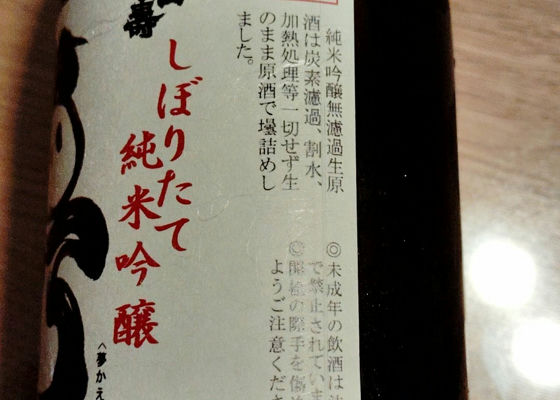 純米吟醸無濾過生原
酒は炭素濾過、割水、
加熱処理等一切せず生
のまま原酒で壜詰めし
ました。
◎未成年の飲酒は法
で禁止されていま
◎開栓の際手を傷
ようご注意くださ
壽
しぼりたて
純米吟醸
〈夢かえ